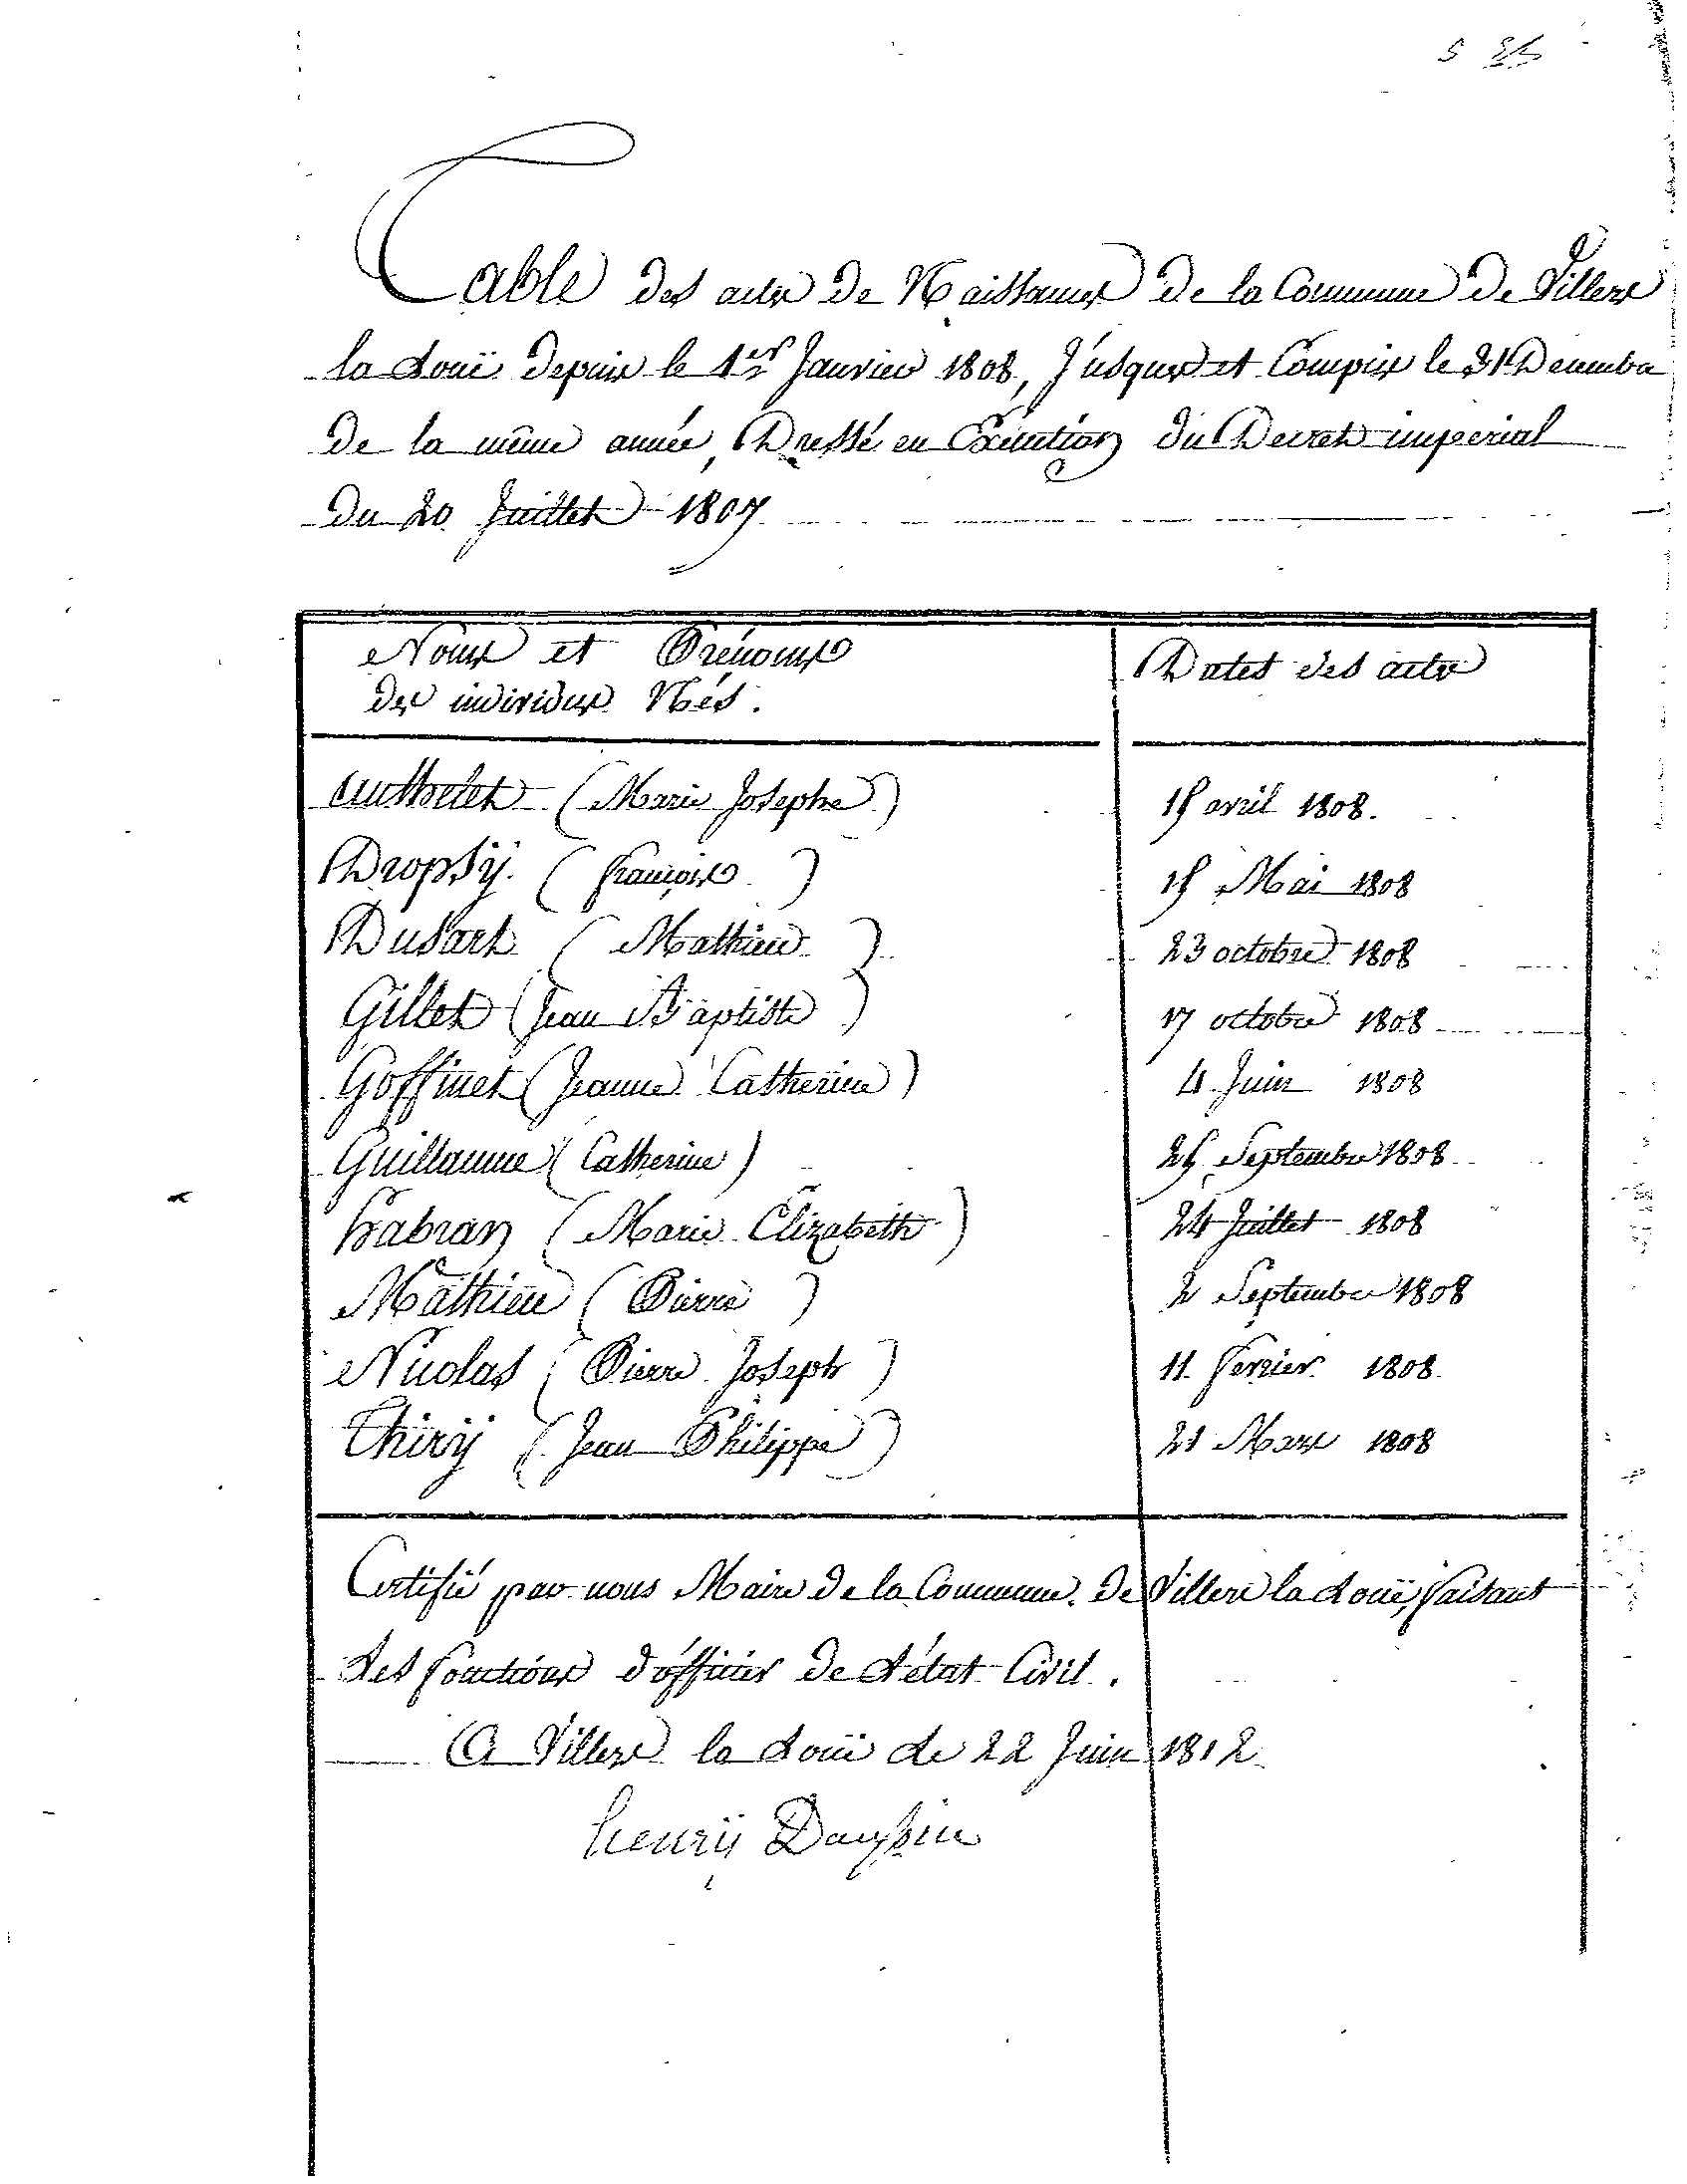 Table des actes de Naissances de la Commune de Villers
la Loüe depuis le 1er Janvier 1808, Jusques et Compris le 31 Decembre
de la même année, Dressé en Exécution du Decret imperial
du 20 Juillet 1807
Noms et Prénoms
des individus Nés.
Dates des actes
(Marie Josephe) 15 avril 1808.
Dropsÿ. (françois) 15 Mai 1808
Dusart (Mathieu) 23 octobre 1808
Gillet (Jean Baptiste) 17 octobre 1808
Goffinet (Jeanne Catherine) 4 Juin 1808
Guillaume (Catherine) 25 Septembre 1808
habran (Marie Elizabeth) 24 Juillet 1808
Mathieu (Pierre) 2 Septembre 1808
Nicolas (Pierre Joseph) 11 fevrier 1808
Thirÿ (Jean Philippe) 21 Mars 1808
Certifié par nous Maire de la Commune de Villers la Loüe, faisant
les fonctions d'officier de l'état Civil.
A Villers la Loüe le 22 Juin 1812
henrÿ